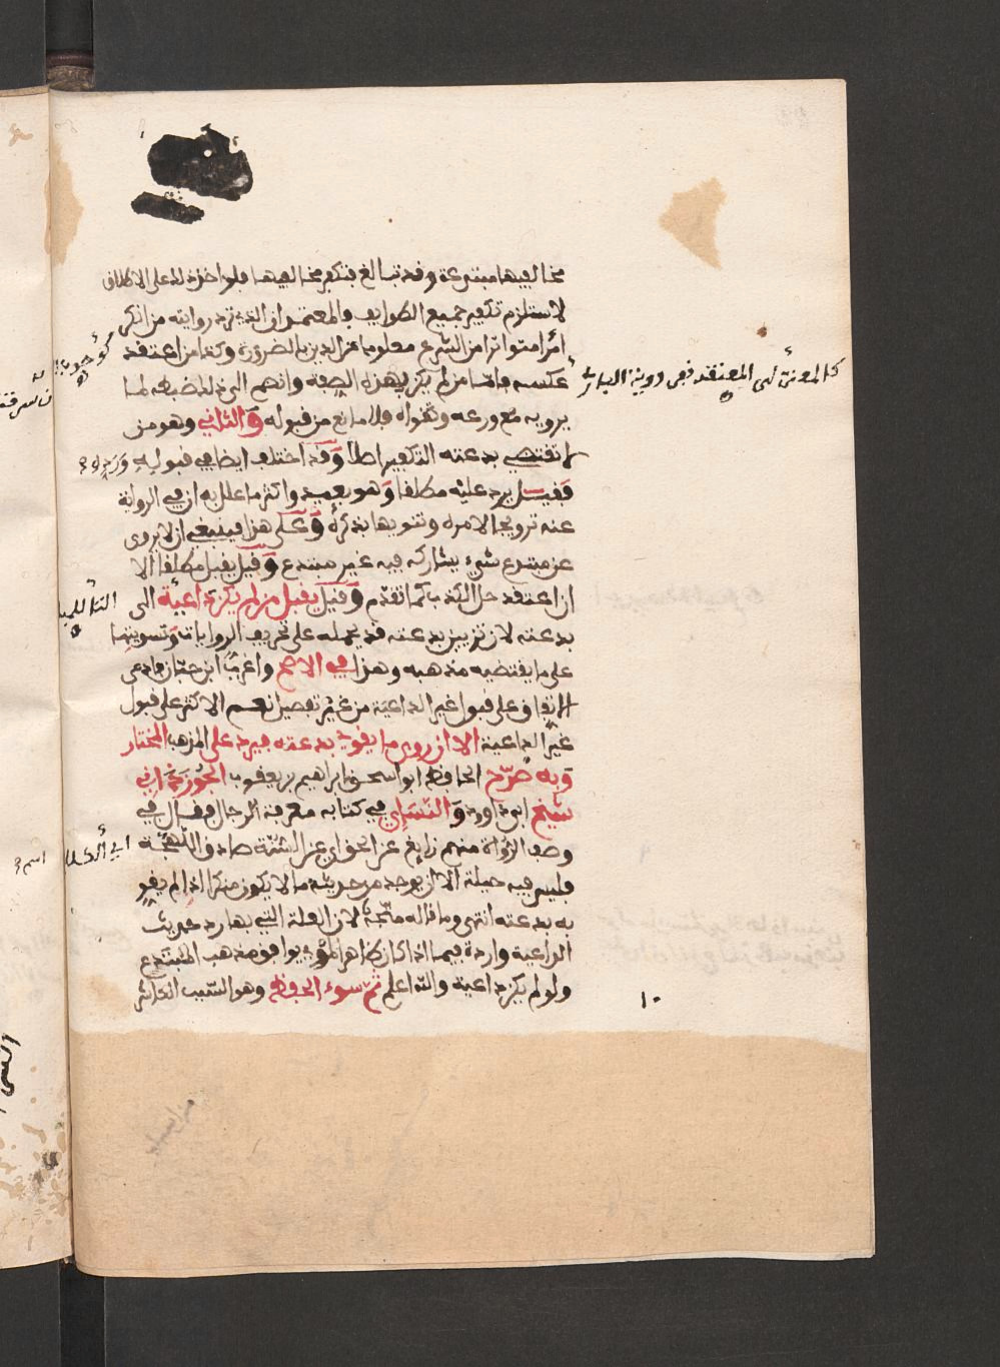 مخالفيها مبتدعة وقد تبالغ فتكفر مخالفيها فلو اخذ ذلك على الاطلاق
لاستلزم تكفير جميع الطوايف والمعتمد ان الذي ترد روايته من انكر
امرا متواترا من الشرع معلوما من الدين بالضرورة وكذا من اعتقد
عكسه فاما من لم يكن بهذه الصفة وانضم الى ذلك ضبطه لما
يرويه مع ورعه وتقواه فلا مانع من قبوله والثاني وهو من
لا تقتضي بدعته التكفير اصلا وقد اختلف ايضا في قبوله ورده
فقيل يرد عليه مطلقا وهو بعيد واكثر ما علل به ان في الرواية
عنه ترويجا لامره وتنويها بذكره وعلى هذا فينبغي ان لا يروى
عن مبتدع شيء يشاركه فيه غير مبتدع وقيل يقبل مطلقا الا
ان اعتقد حل الكذب كما تقدم وقيل يقبل من لم يكن داعية الى
بدعته لان تزيين بدعته قد يحمله على تحريف الروايات وتسويتها
على ما يقتضيه مذهبه وهذا في الاصح واغرب ابن حبان فادعى
الاتفاق على قبول غير الداعية من غير تفصيل نعم الاكثر على قبول
غير الداعية الا ان روى ما يقوي بدعته فيرد على المذهب المختار
وبه صرح الحافظ ابو اسحق ابراهيم بن يعقوب الجوزجاني
شيخ ابي داود والنساي في كتابه معرفة الرجال فقال في
وصف الرواة منهم زايغ عن الحق اي عن السنة صادق اللهجة
فليس فيه حيلة الا ان يوخذ من حديثه ما لا يكون منكرا اذا لم يقو
به بدعته انتهى وما قاله متجه لان العلة التي بها رد حديث
الداعية واردة فيما اذا كان ظاهر المروي يوافق مذهب المبتدع
ولو لم يكن داعية والله اعلم ثم سوء الحفظ وهو السبب العاشر
١٠